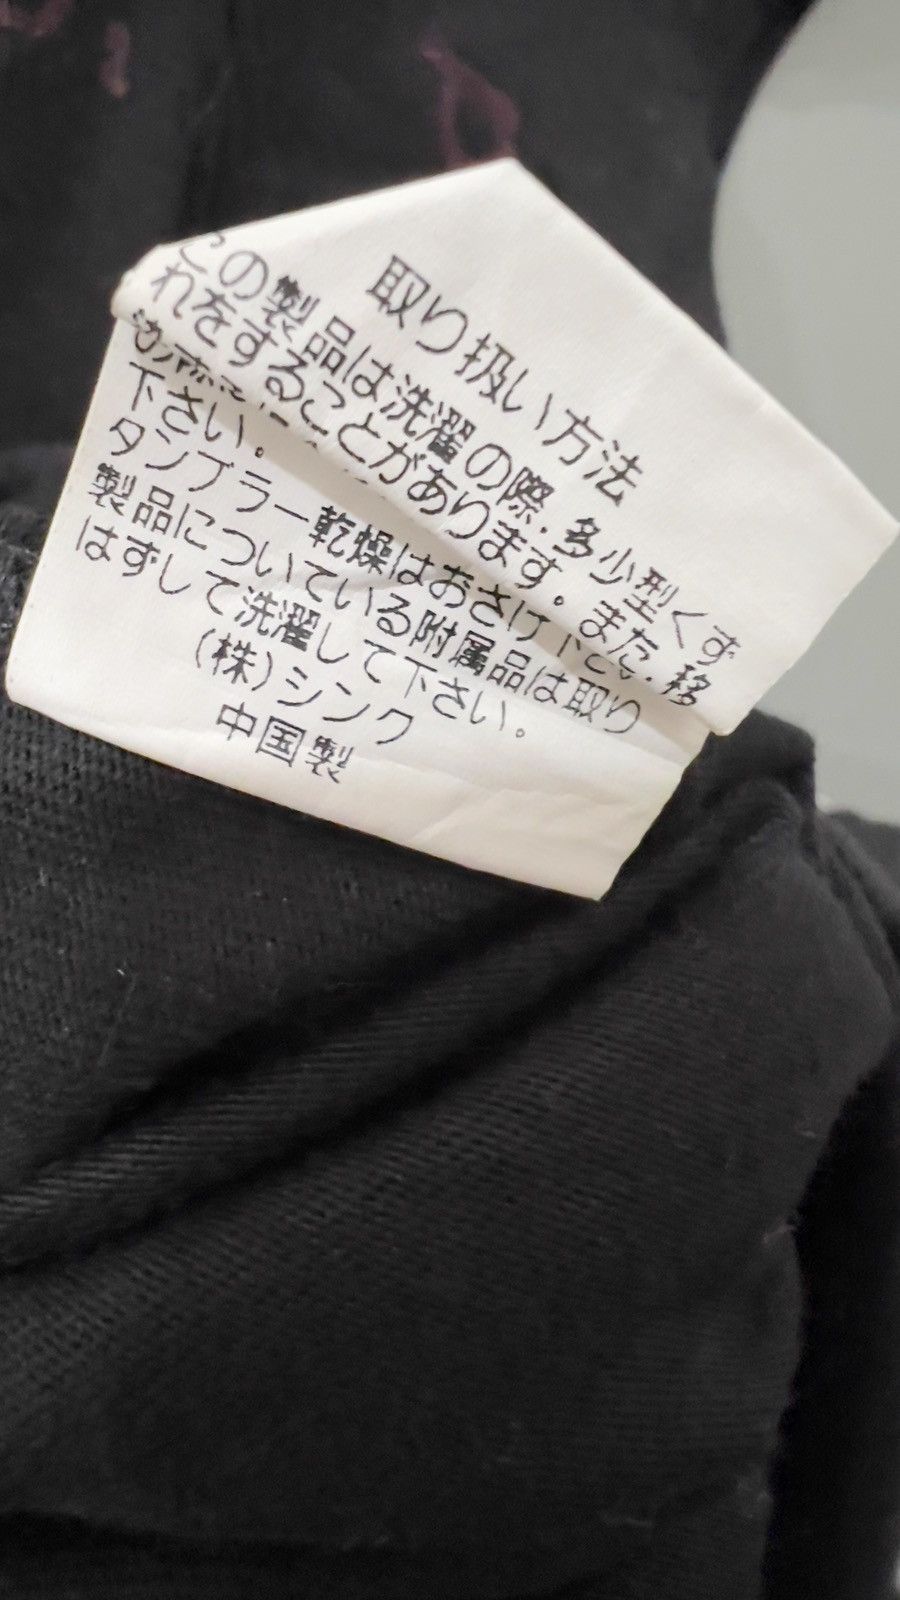 取り扱い方法
この製品は洗濯の際、多少型くず
れをすることがあります。また、移
下さい。
タンブラー乾燥はおさけ下さい。
製品についている附属品は取り
はずして洗濯して下さい。
(株)シンク
中国製